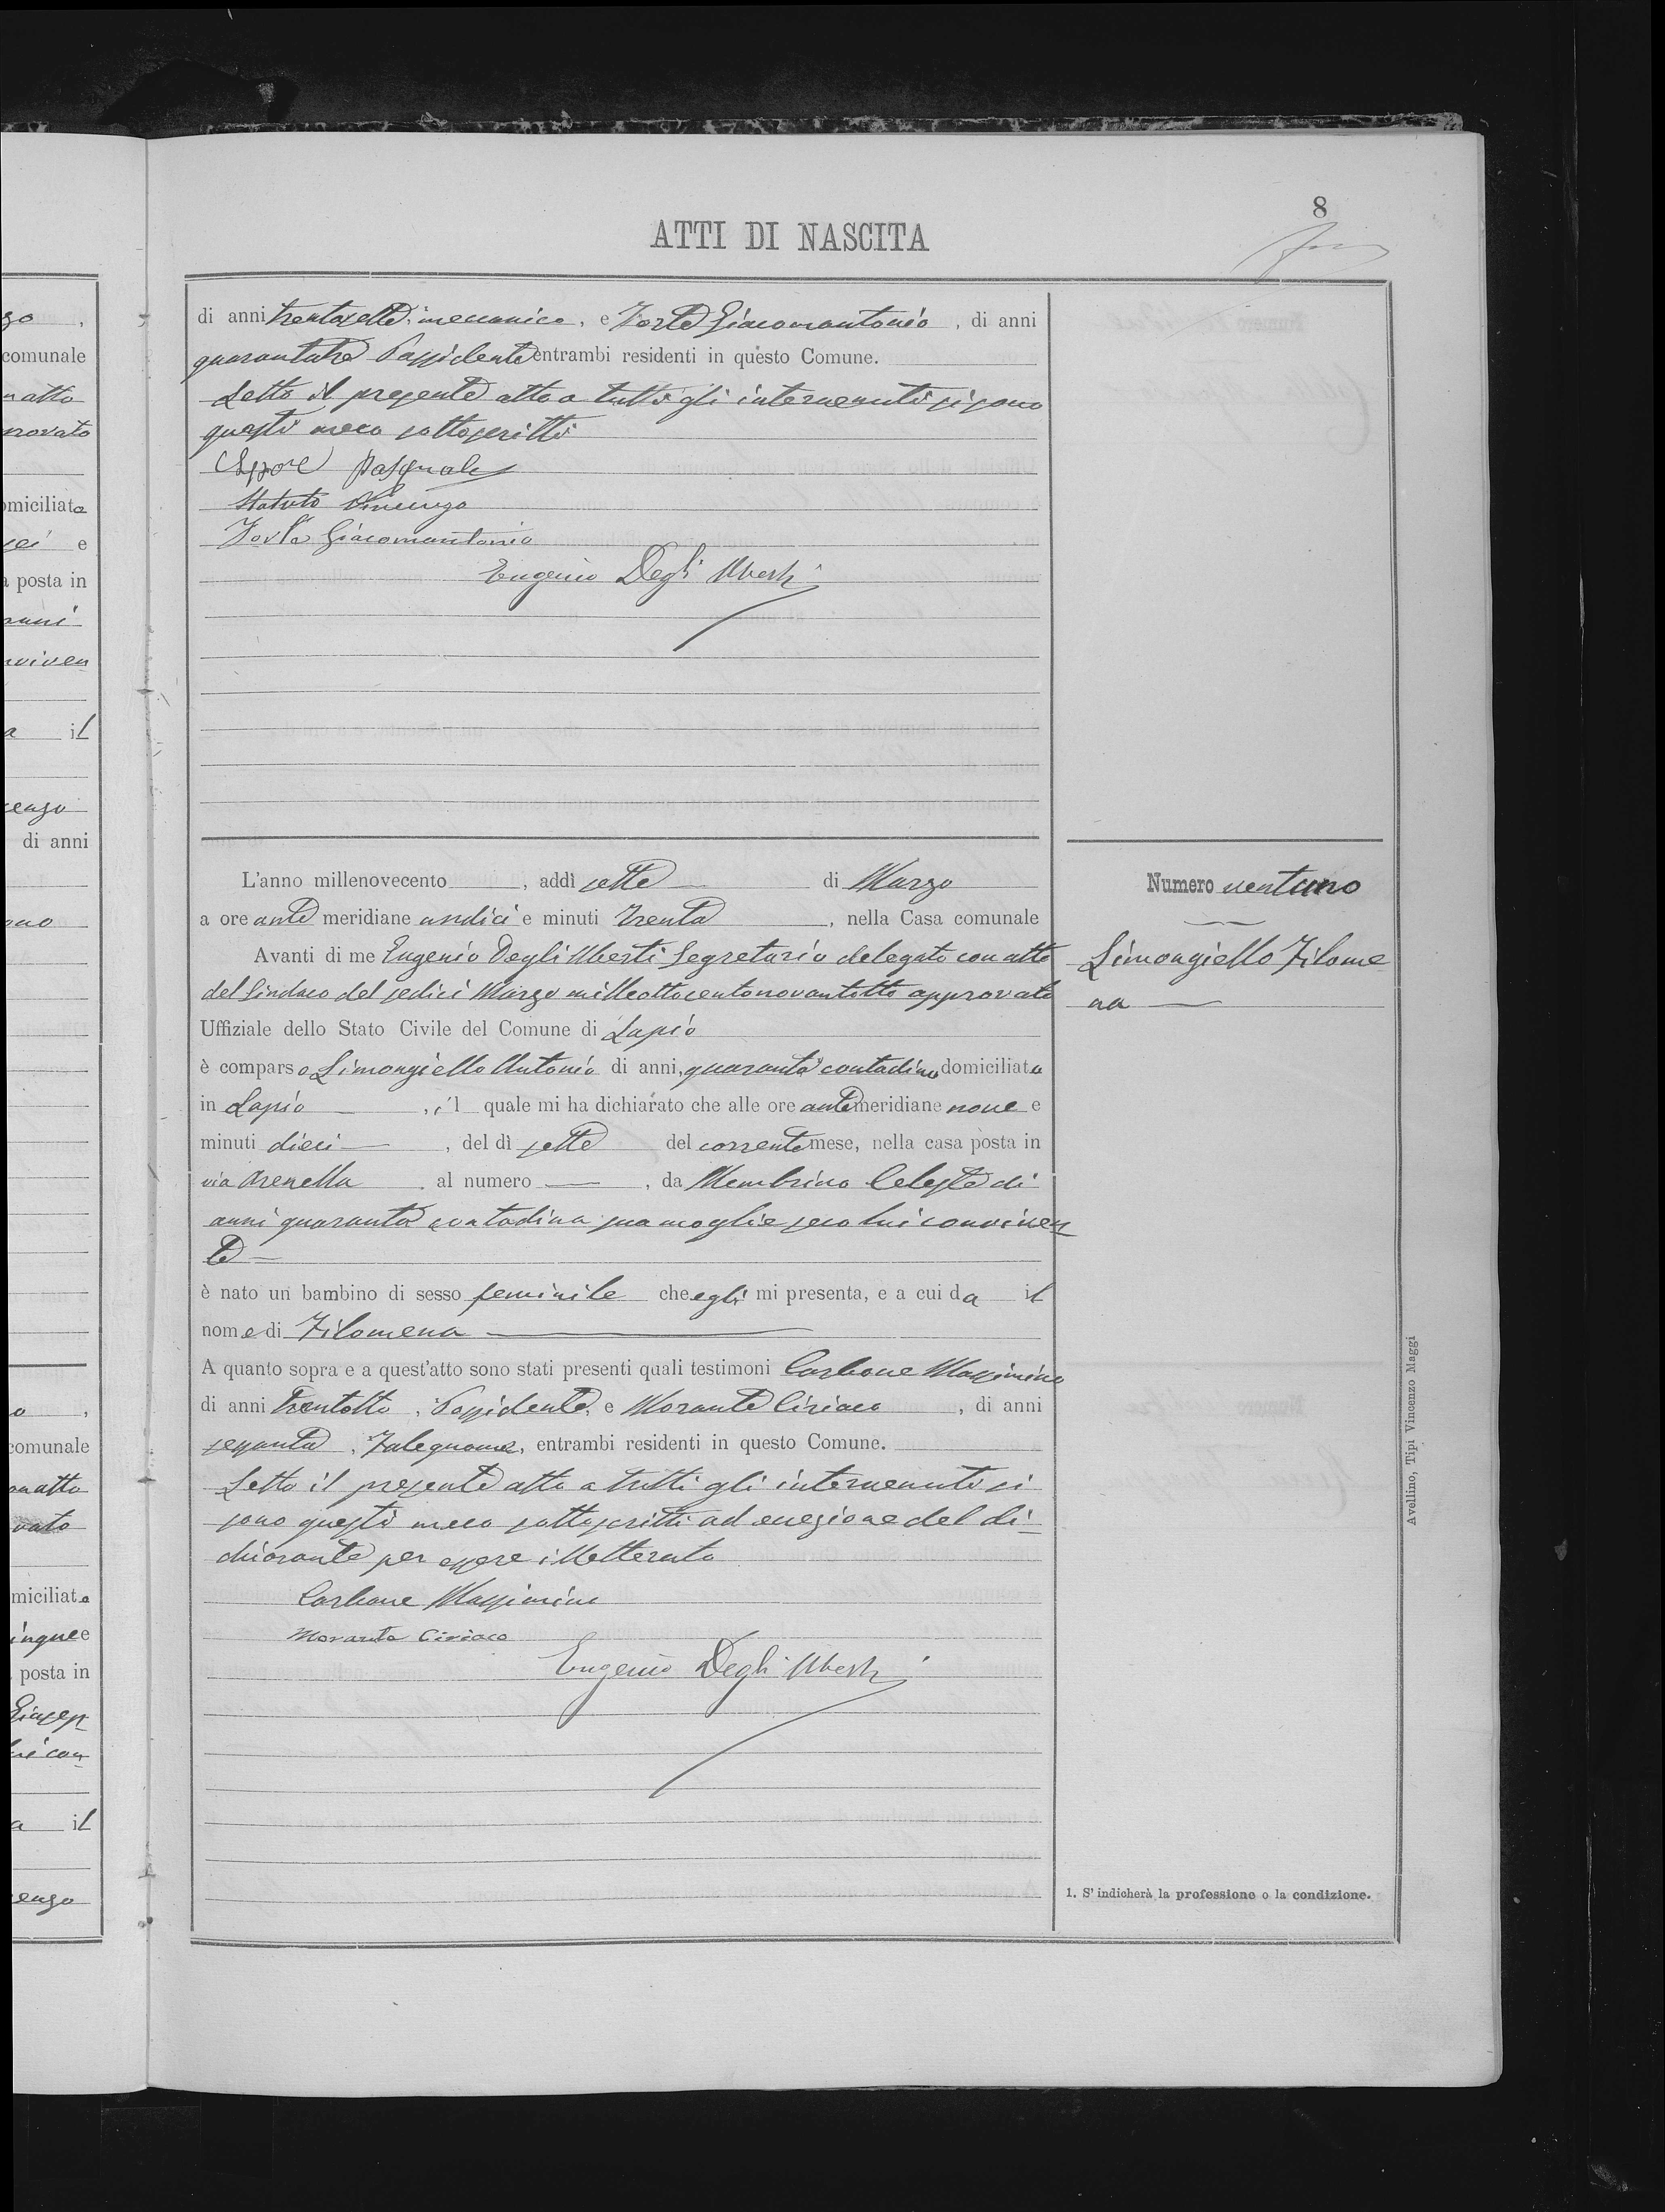 8
ATTI DI NASCITA
di anni trentasette, meccanico, e Forte Giacomantonio, di anni
quarantatre Possidente entrambi residenti in questo Comune.
Letto il presente atto a tutti gli intervenuti si sono
questi meco sottoscritti
Pasquale
Statuto Vincenzo
Forte Giacomantonio
Eugenio Degli Uberti
L'anno millenovecento, addì sette di Marzo
a ore ante meridiane undici e minuti trenta, nella Casa comunale
Avanti di me Eugenio Degli Uberti Segretario delegato con atto
del Sindaco del sedici Marzo milleottocentonovantotto approvato
Uffiziale dello Stato Civile del Comune di Lapio
è comparso Limongiello Antonio di anni, quaranta contadino domiciliato
in Lapio, il quale mi ha dichiarato che alle ore antemeridiane nove e
minuti dieci, del dì sette del corrente mese, nella casa posta in
via Arenella al numero —, da Membrino Celeste di
anni quaranta contadina sua moglie seco lui conviven
te
è nato un bambino di sesso feminile che egli mi presenta, e a cui da il
nome di Filomena
A quanto sopra e a quest'atto sono stati presenti quali testimoni Carbone Massimino
di anni trentotto, Possidente, e Morante Ciriaco, di anni
sessanta, Falegname, entrambi residenti in questo Comune.
Letto il presente atto a tutti gli intervenuti si
sono questi meco sottoscritti ad eccezione del di-
chiarante per essere illetterato
Carbone Massimino
Morante Ciriaco
Eugenio Degli Uberti
Numero ventuno
Limongiello Filome
na
1. S'indicherà la professione o la condizione.
Avellino, Tipi Vincenzo Maggi